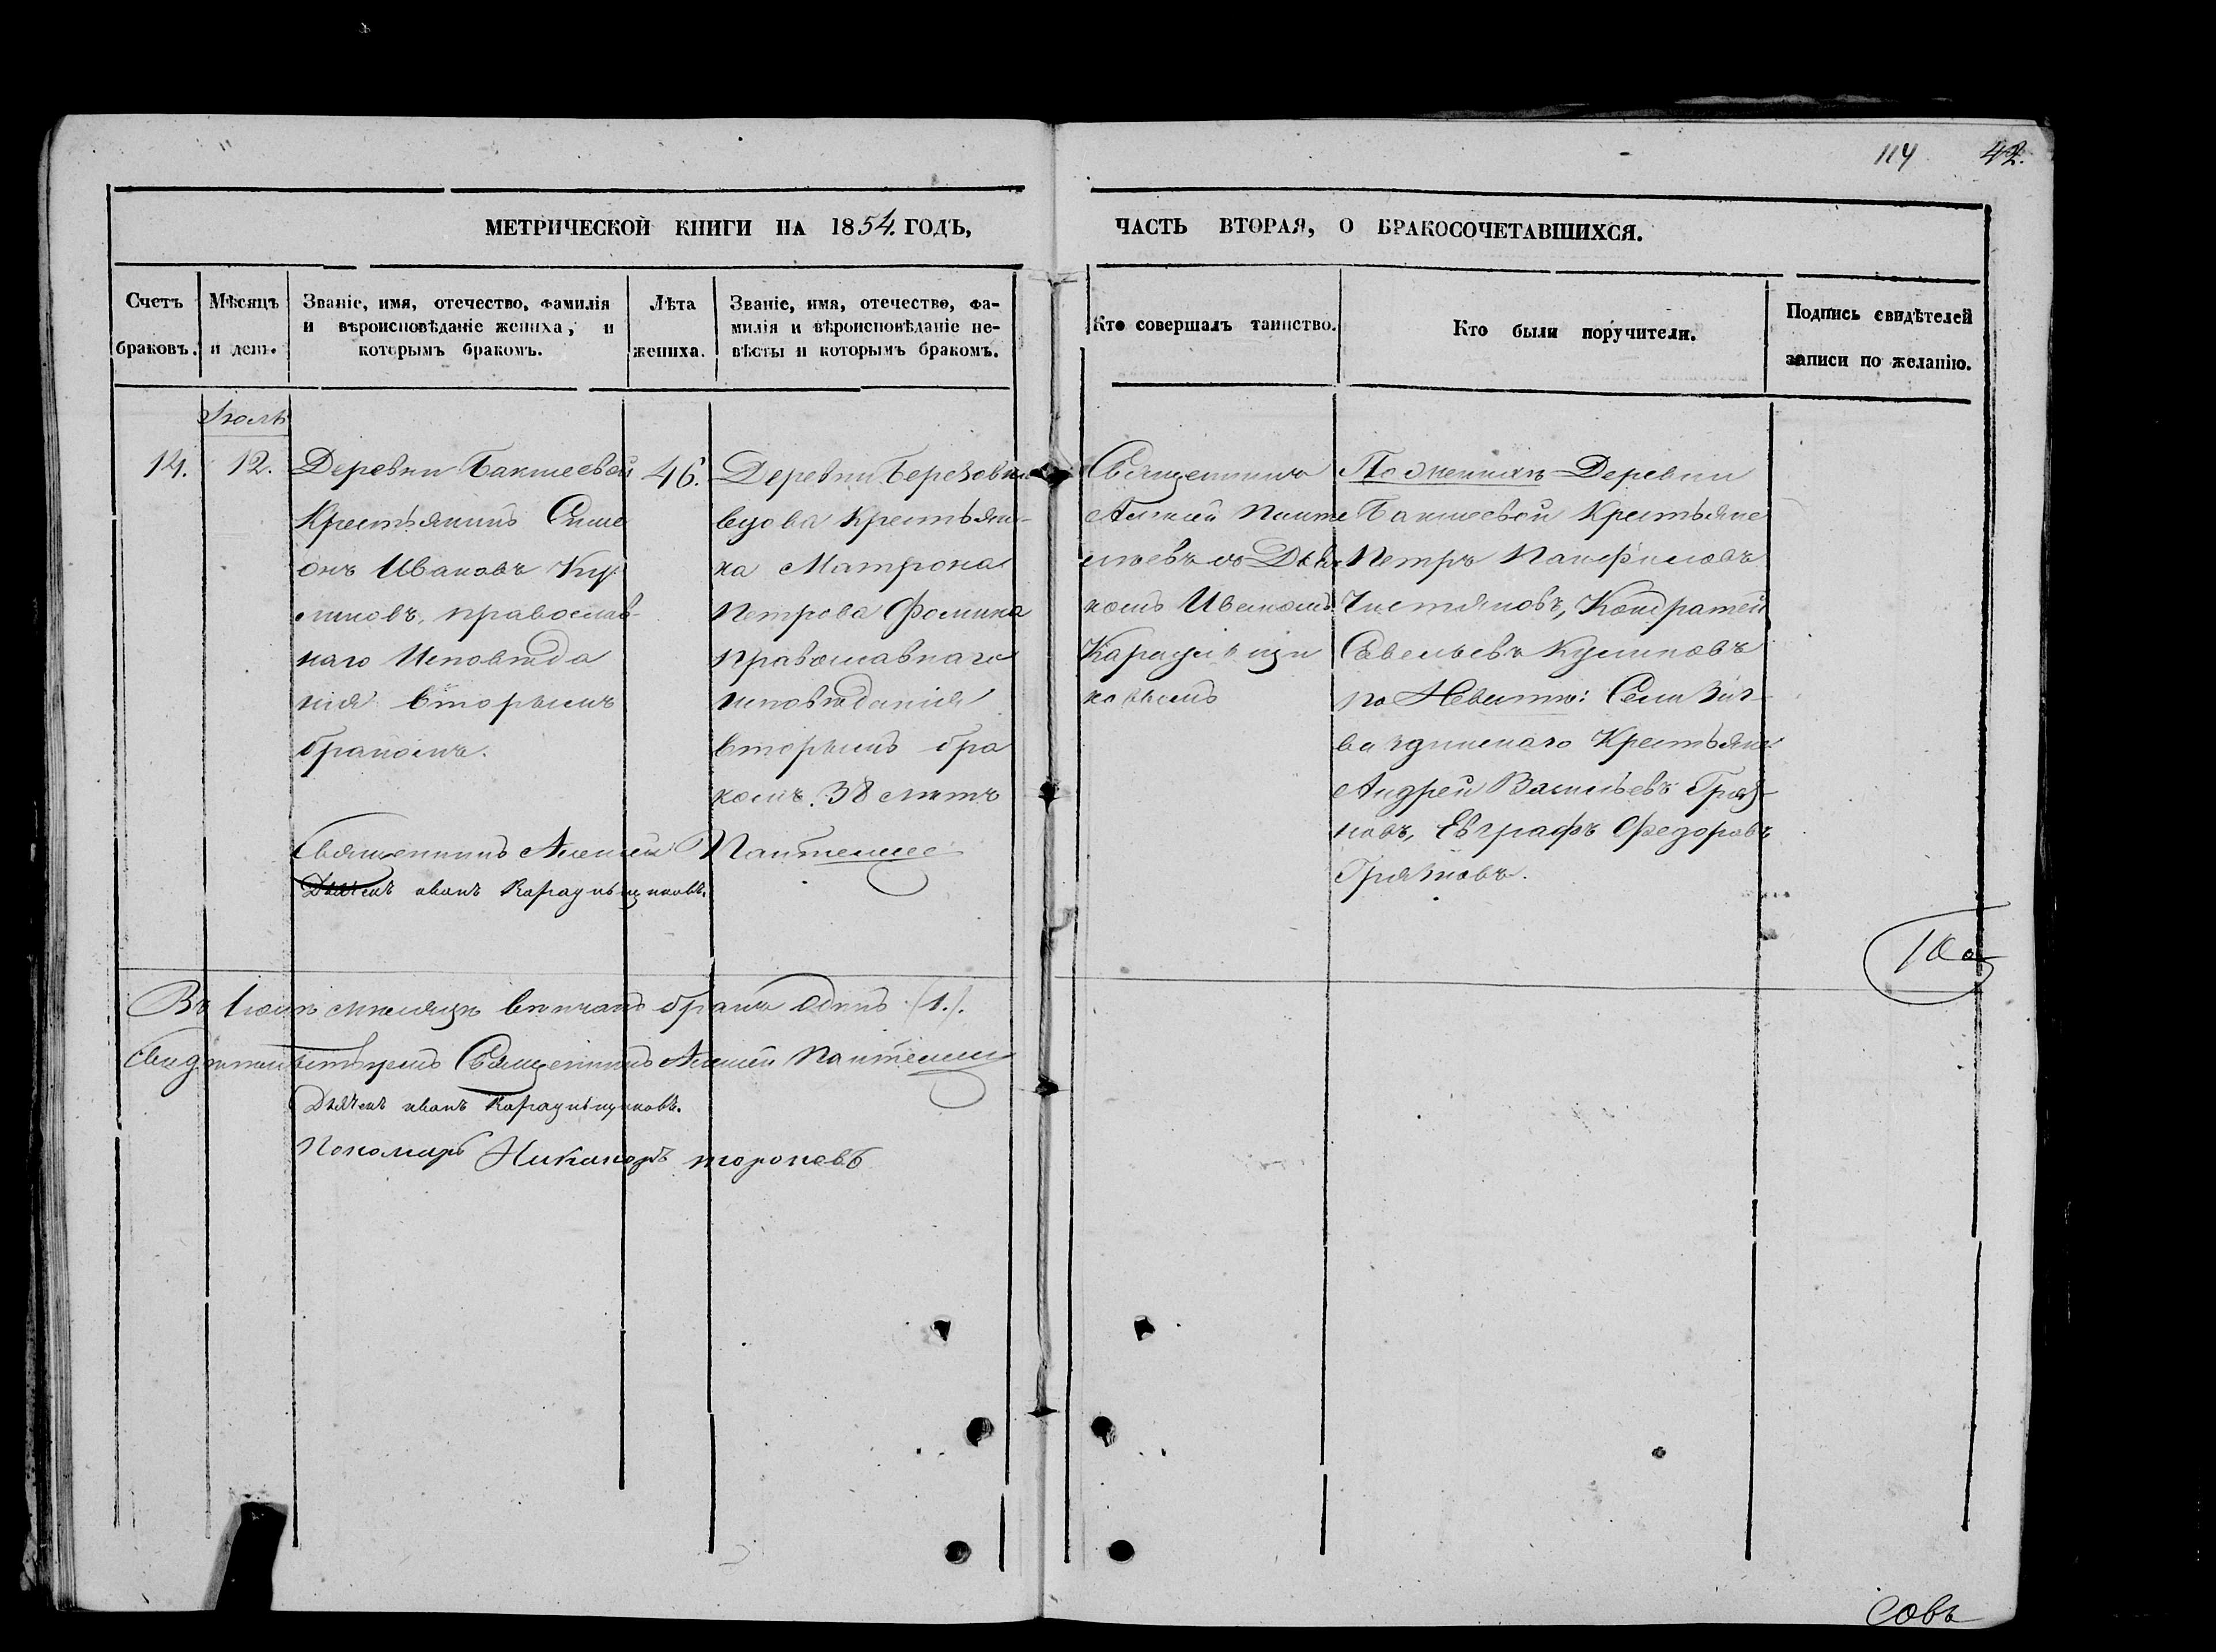 114 42.
МЕТРИЧЕСКОЙ КНИГИ НА 1854. ГОДЪ,
ЧАСТЬ ВТОРАЯ, О БРАКОСОЧЕТАВШИХСЯ.
Счетъ браковъ.
Мѣсяцъ и день.
Званіе, имя, отечество, фамилія
и вѣроисповѣданіе жениха, и
которымъ бракомъ.
Лѣта жениха.
Званіе, имя, отечество, фа-
милія и вѣроисповѣданіе не-
вѣсты и которымъ бракомъ.
Кто совершалъ таинство.
Кто были поручители.
Подпись свидѣтелей
записи по желанію.
Іюль
14.
12.
Деревни Бакшеевой
Крестьянинъ Симе
онъ Ивановъ Ку
ликовъ, православ-
наго Исповѣда
нія вторымъ
бракомъ.
46.
Деревни Березовки
вдова Крестьян-
ка Матрона
Петрова Фомина
православнаго
исповѣданія
вторымъ бра
комъ. 38 лѣтъ
Священникъ
Алексей Панте
леевъ съ Дьяч
комъ Иваномъ
Караульщи
ковымъ
По женихѣ Деревни
Бакшеевой Крестьяне
Петръ Панфиловъ
Чистяковъ, Кондратей
Савельевъ Куликовъ
по Невѣстѣ: Села
Крестьяне
Андрей Васильевъ Гряз-
новъ, Евграфъ Федоровъ
Грязновъ.
Священникъ Алексей
Дьячекъ иванъ Караульщиковъ.
Въ Іюлѣ мѣсяцѣ вѣнчанъ бракъ Одинъ (1.).
Свидѣтельствуемъ Священникъ Алексей
Дьячекъ иванъ Караульщиковъ.
Пономарь Никаноръ тороповъ
совъ